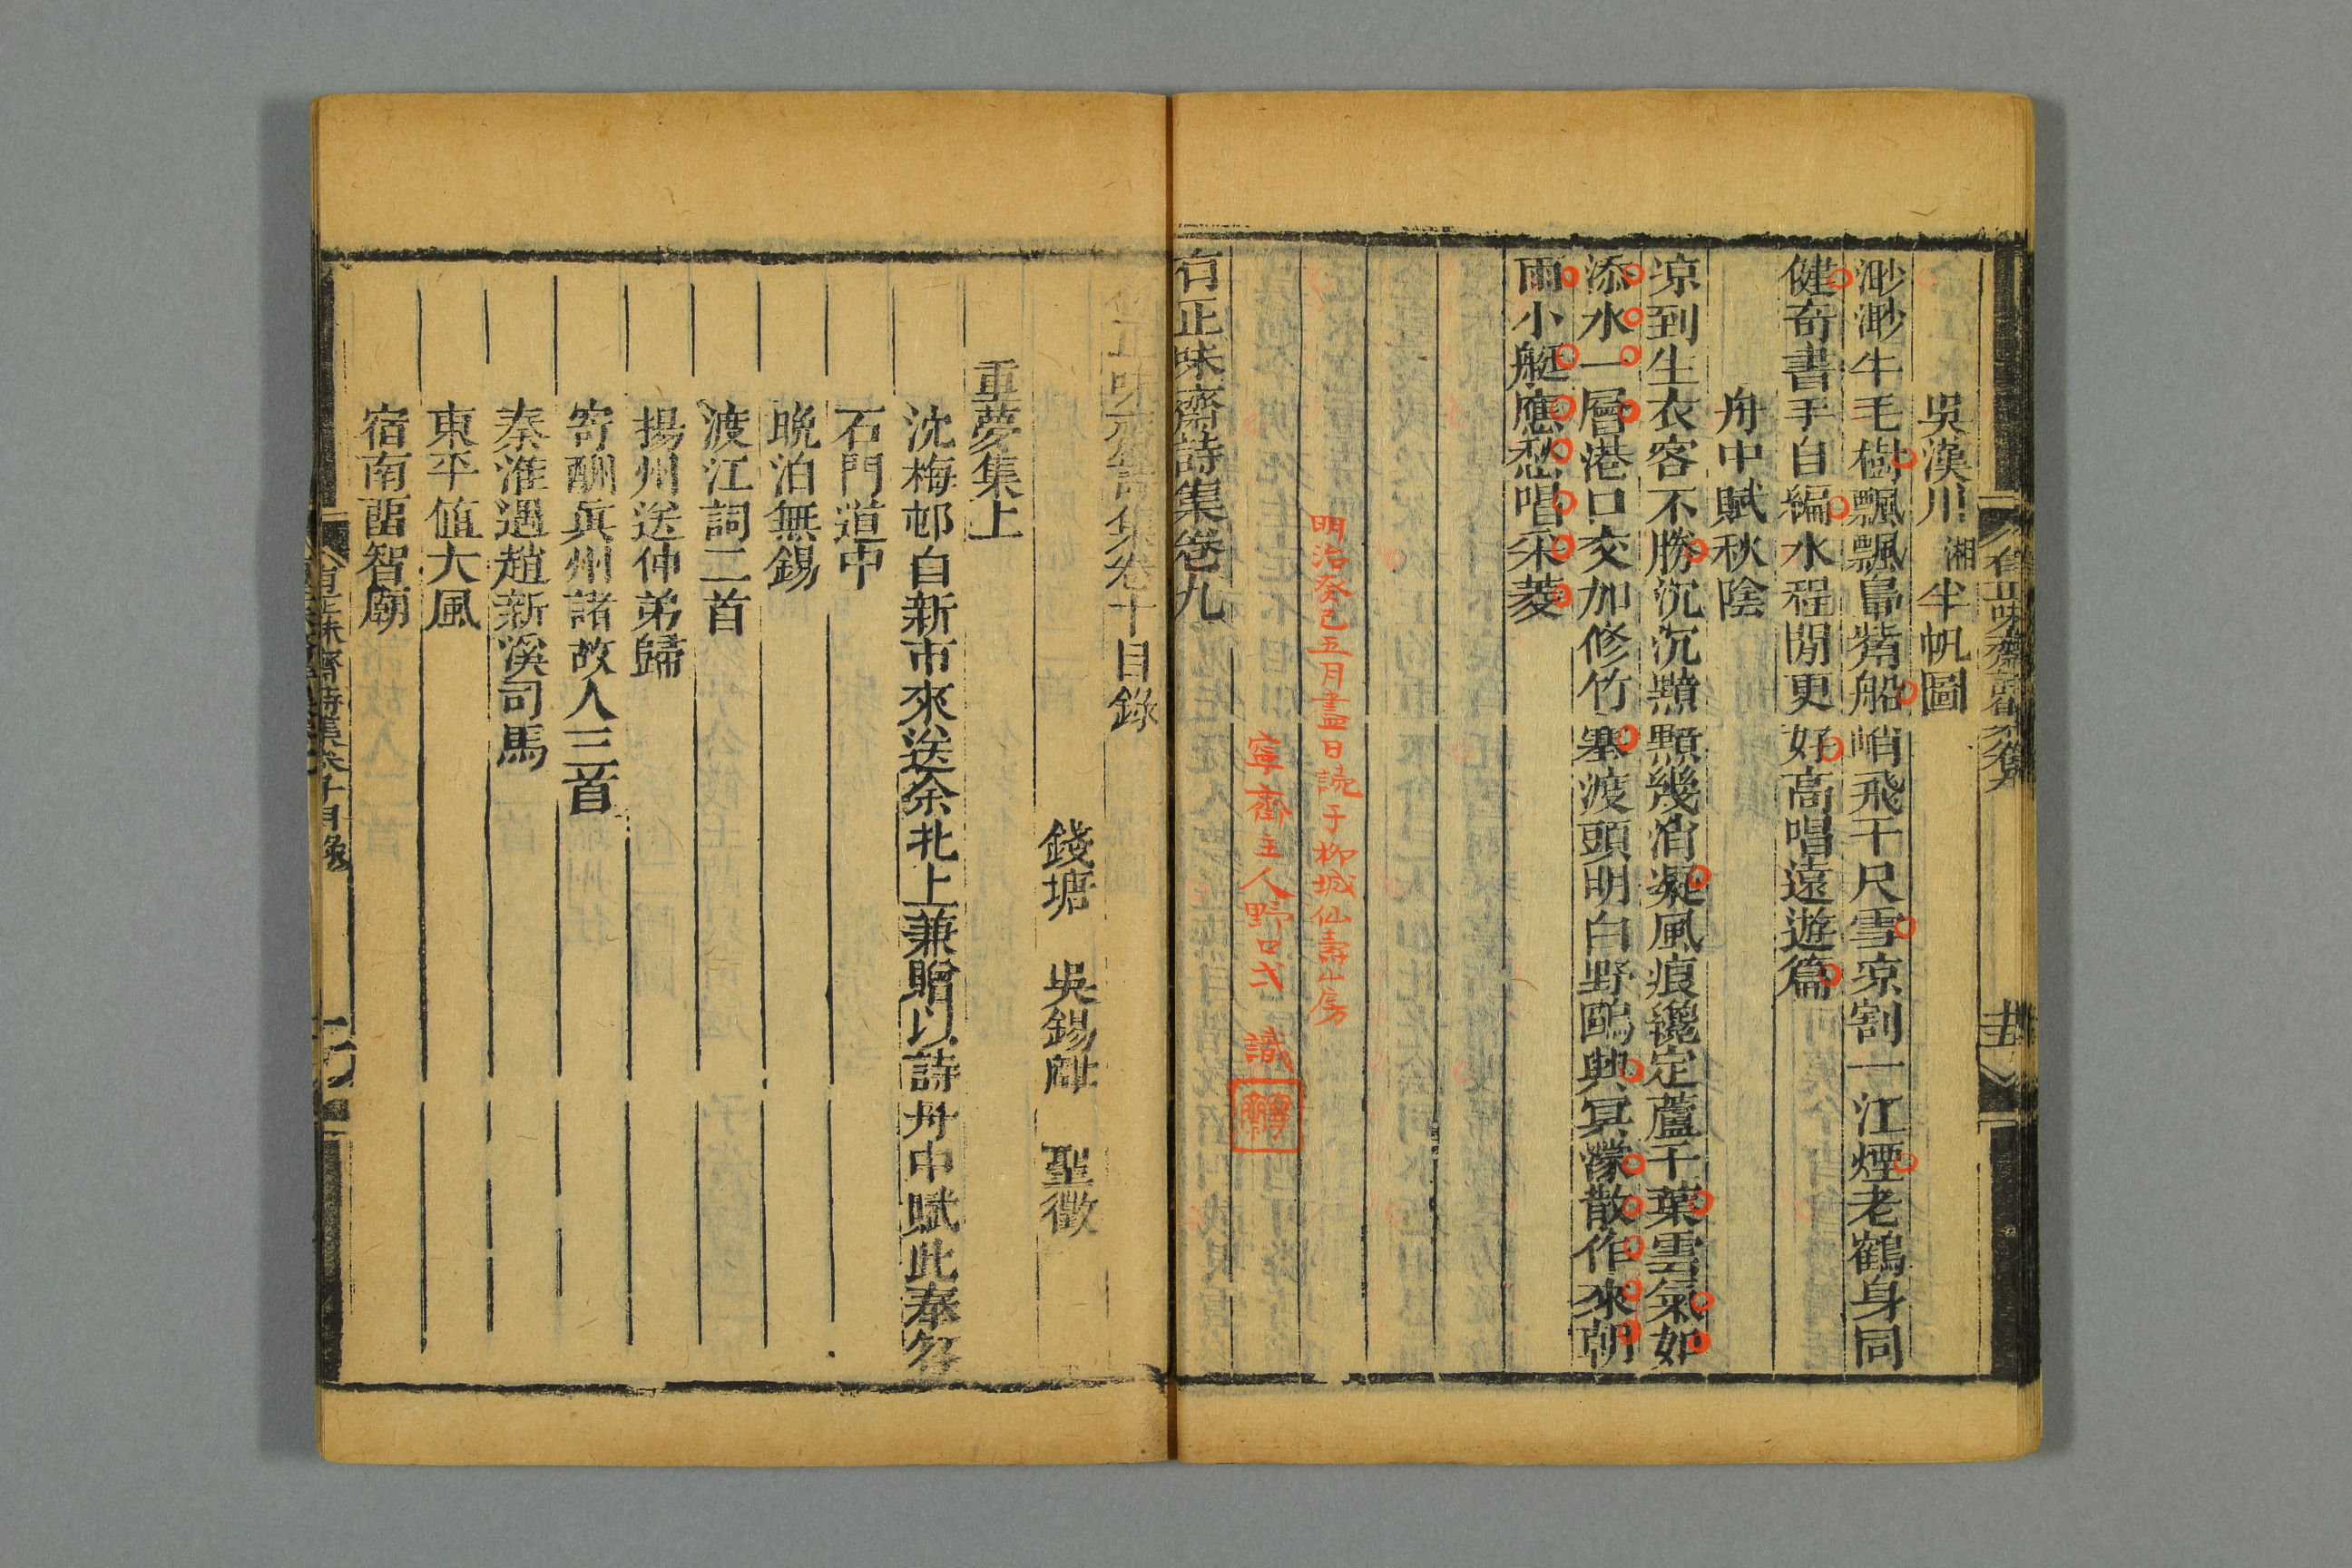 吳漢川湘半帆圖
渺渺牛毛樹飄飄鳧觜船峭飛千尺雪凉割一江煙老鶴身同
健奇書手自編水程閒更好高唱遠遊篇
舟中賦秋陰
凉到生衣客不勝沉沉顥顥幾消凝風痕纔定蘆千葉雲氣如
添水一層港口交加修竹塞渡頭明白野鷗興冥濛散作來朝
雨小艇應愁唱采菱
明治癸巳五月盡日読于柳城仙壽山房
寧齋主人野口弌 識
寧齋
有正味齋詩集卷九
有正味齋詩集卷十目錄
錢塘 吳錫麒 聖徵
重夢集上
沈梅邨自新市來送余北上兼贈以詩舟中賦此奉答
石門道中
晚泊無錫
渡江詞二首
揚州送仲弟歸
寄酬真州諸故人三首
秦淮遇趙新溪司馬
東平值大風
宿南酉智廟
有正味齋詩集卷十目錄